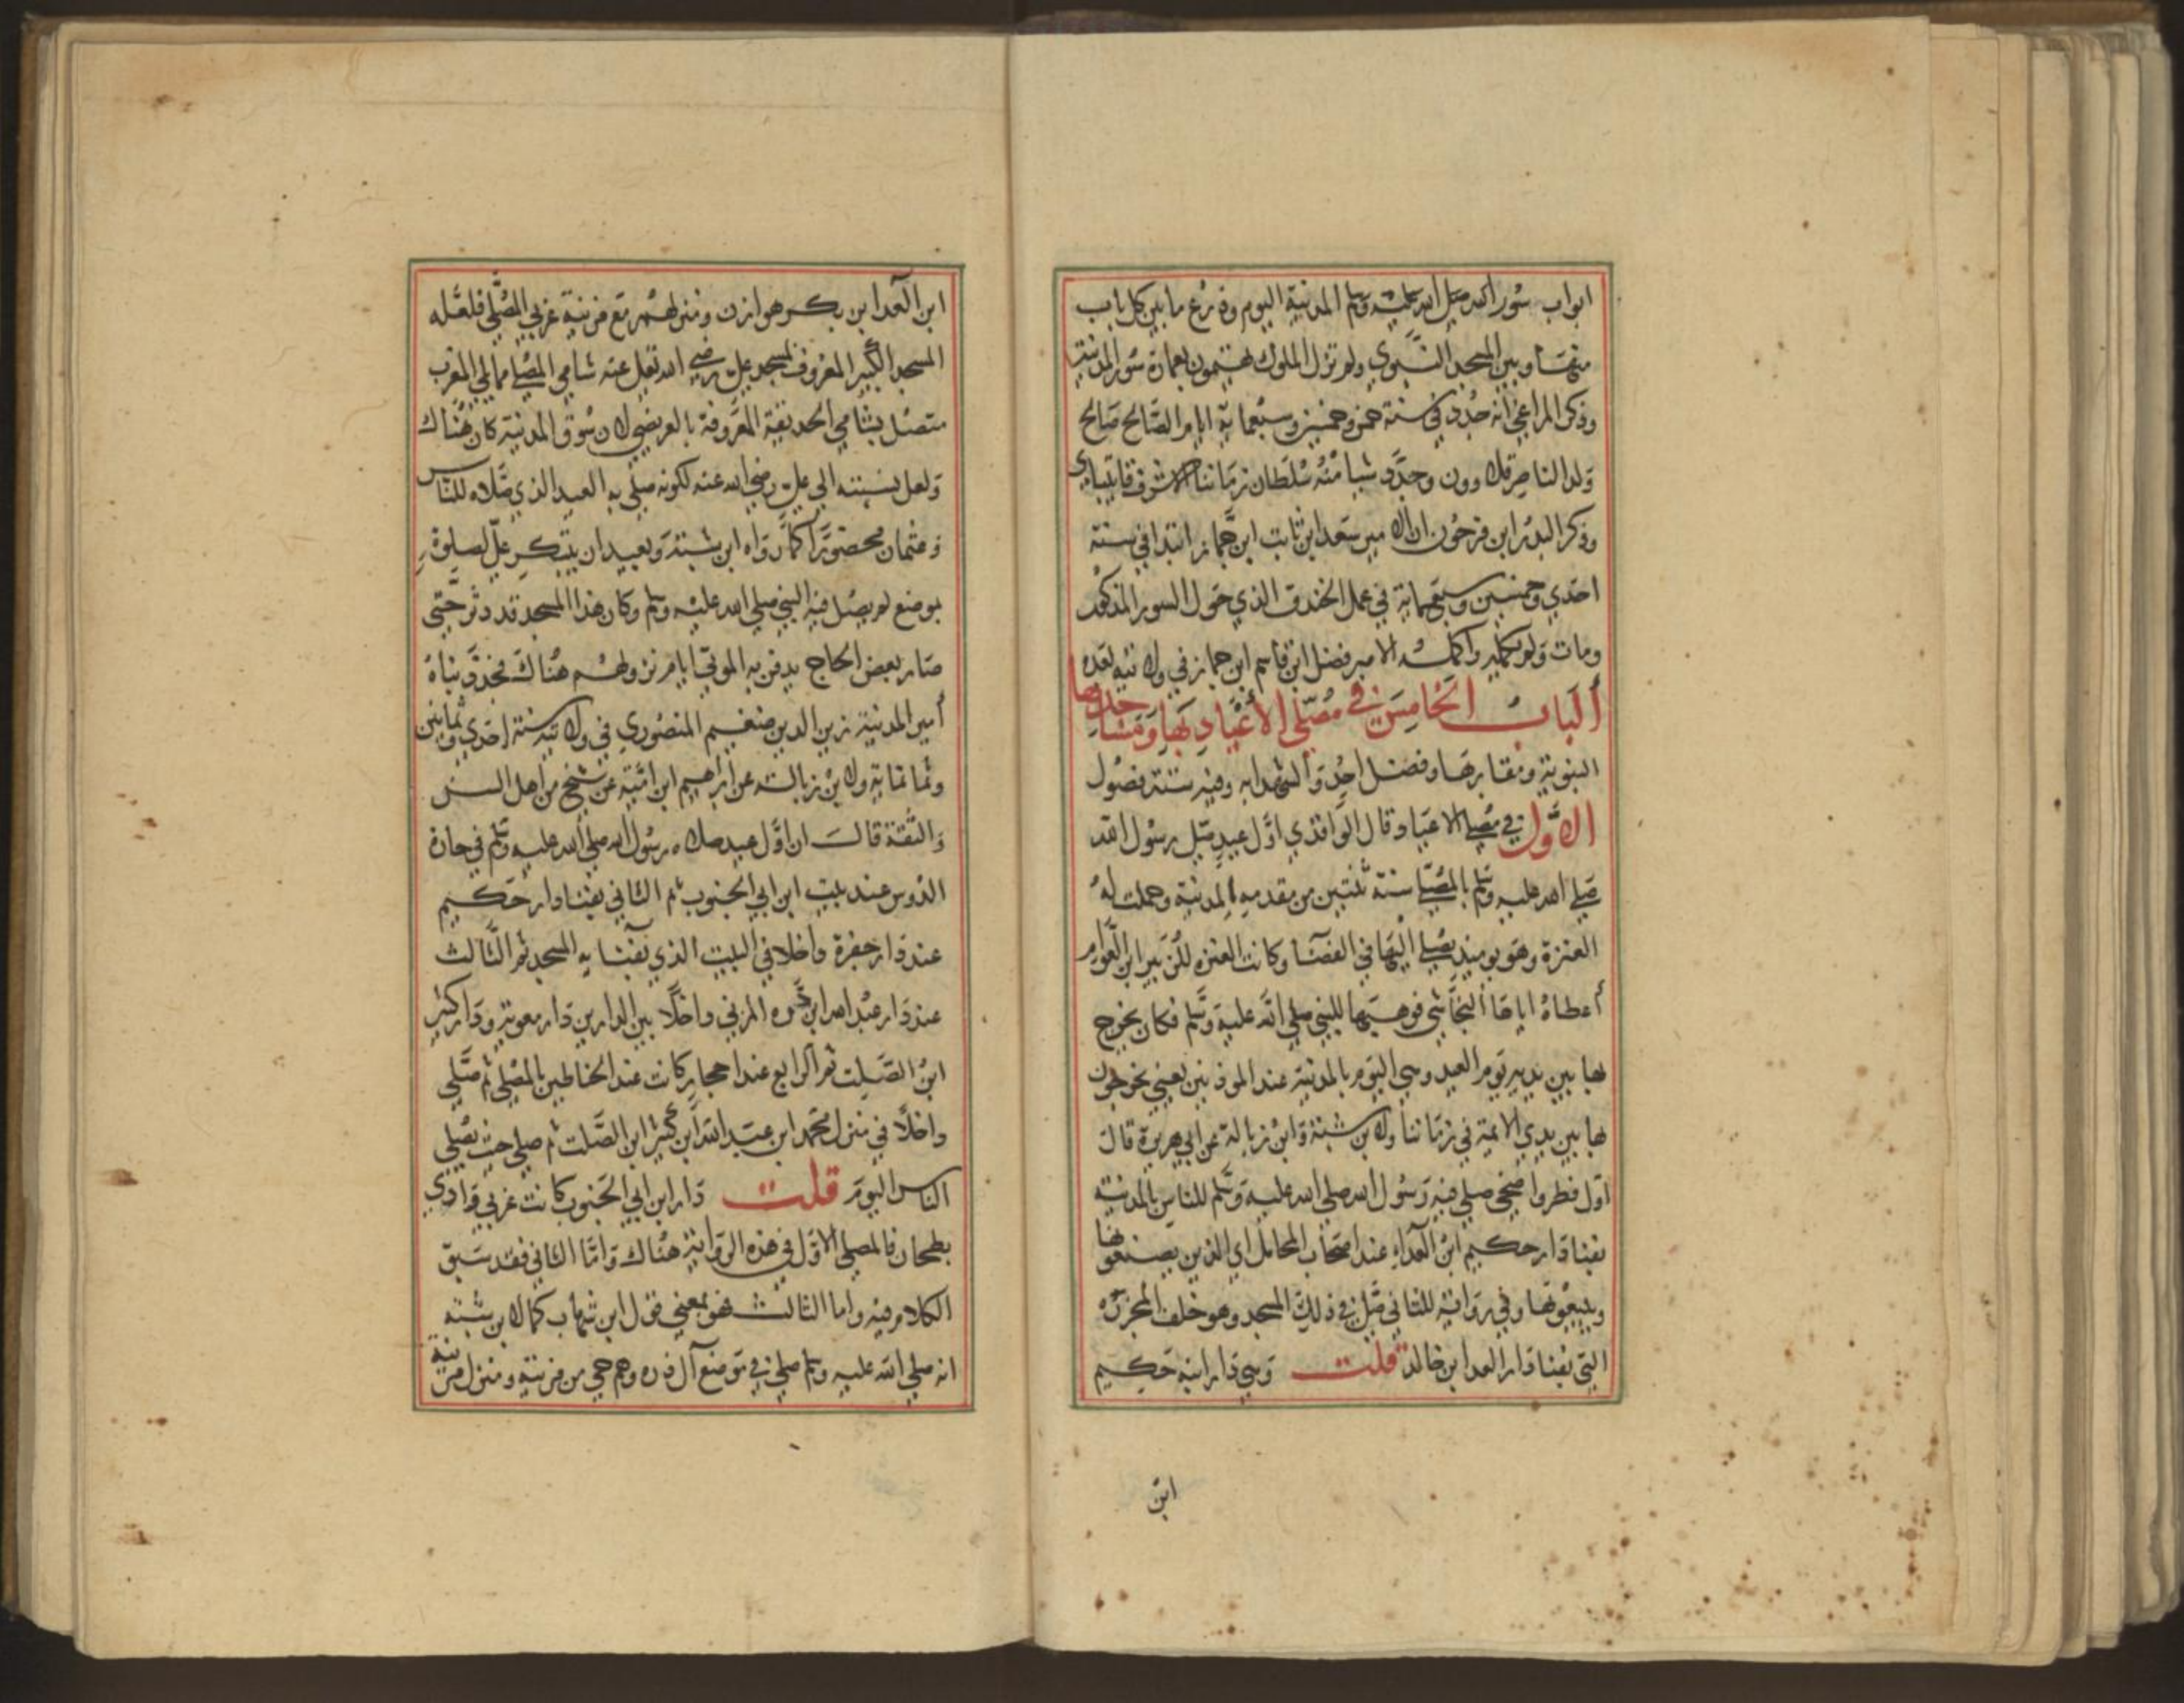 ابواب سور المدينة اليوم وذرع ما بين كل باب
منها وبين المسجد النبوي ولم تزل الملوك يهتمون بعمارة سور المدينة
وذكر المراغي انه جدد في سنة خمس وخمسين وسبعماية ايام الصالح صالح
ولد الناصر قلاوون وجدد شيا منه سلطان زماننا الاشرف قايتباي
وذكر البدر ابن فرحون ان الامير سعد ابن ثابت ابن جماز ابتدا في سنة
احدي وخمسين وسبعماية في عمل الخندق الذي حول السور المذكور
ومات ولم يكمله واكمله الامير فضل ابن قاسم ابن جماز في ولايته بعده
الباب الخامس في مصلى الاعياد بها ومساجدها
النبوية ومقابرها وفضل احد والشهدا به وفيه ستة فصول
الاول في مصلي الاعياد قال الواقدي اول عيد صلى رسول الله
صلي الله عليه وسلم بالمصلي سنة ثنتين من مقدمه المدينة وحملت له
العنزة وهو يوميذ يصلي اليها في الفضا وكانت العنزه للزبير ابن العوام
أعطاه اياها النجاشي فوهبها للنبي صلي الله عليه وسلم فكان يخرج
بها بين يديه يوم العيد وهي اليوم بالمدينة عند الموذنين يعني يخرجون
بها بين يدي الايمة في زماننا ولابن شبة وابن زبالة عن ابي هريرة قال
اول فطر واضحي صلي فيه رسول الله صلي الله عليه وسلم للناس بالمدينة
بفنا دار حكيم ابن العداء عند اصحاب المحامل اي الذين يصنعونها
ويبيعونها وفي رواية للثاني صلى في ذلك المسجد وهو خلف المجزرة
التي بفنا دار العدا بن خالد قلت وهي دار ابنه حكيم
ابن
ابن العدا ابن بكر هوازن ومنزلهم مع مزينة غربي المصلي فلعله
المسجد الكبير المعروف بمسجد علي رضي الله تعالى عنه شامي المصلي مما يلي المغرب
متصل بشامي الحديقة المعروفة بالعريضي لان سوق المدينة كان هناك
ولعل نسبته الي علي رضي الله عنه لكونه صلي به العيد الذي صلاه للناس
وعثمان محصورا كما رواه ابن شبة وبعيد ان يبتكر علي الصلوة
بموضع لم يصل فيه النبي صلي الله عليه وسلم وكان هذا المسجد قد دثر حتى
صار بعض الحاج يدفن به الموتى ايام نزولهم هناك فجدد بناه
أمير المدينة زين الدين ضغيم المنصوري في ولايته سنة احدي وثمانين
وثمانماية ولابن زبالة عن ابراهيم ابن امية عن شيخ من اهل السن
والثقة قال ان اول عيد صلاه رسول الله صلي الله عليه وسلم في حارة
الدوس عند بيت ابن ابي الجنوب ثم الثاني بفنا دار حكيم
عند دار جفرة داخلا في البيت الذي بفنايه المسجد ثم الثالث
عند دار عبد الله ابن درة المزني داخلا بين الدارين دار معوية ودار كثير
ابن الصلت ثم الرابع عند احجار كانت عند الحناطين بالمصلي ثم صلي
داخلا في منزل محمد ابن عبد الله ابن كثير ابن الصلت ثم صلي حيث يصلي
الناس اليوم قلت دار ابن ابي الجنوب كانت غربي وادي
بطحان فالمصلي الاول في هذه الرواية هناك واما الثاني فقد سبق
الكلام فيه واما الثالث فهو بمعني قول ابن شهاب كما لابن شبة
انه صلي الله عليه وسلم صلي في موضع آل درة وهم حي من مزينة ومنزل مزينة